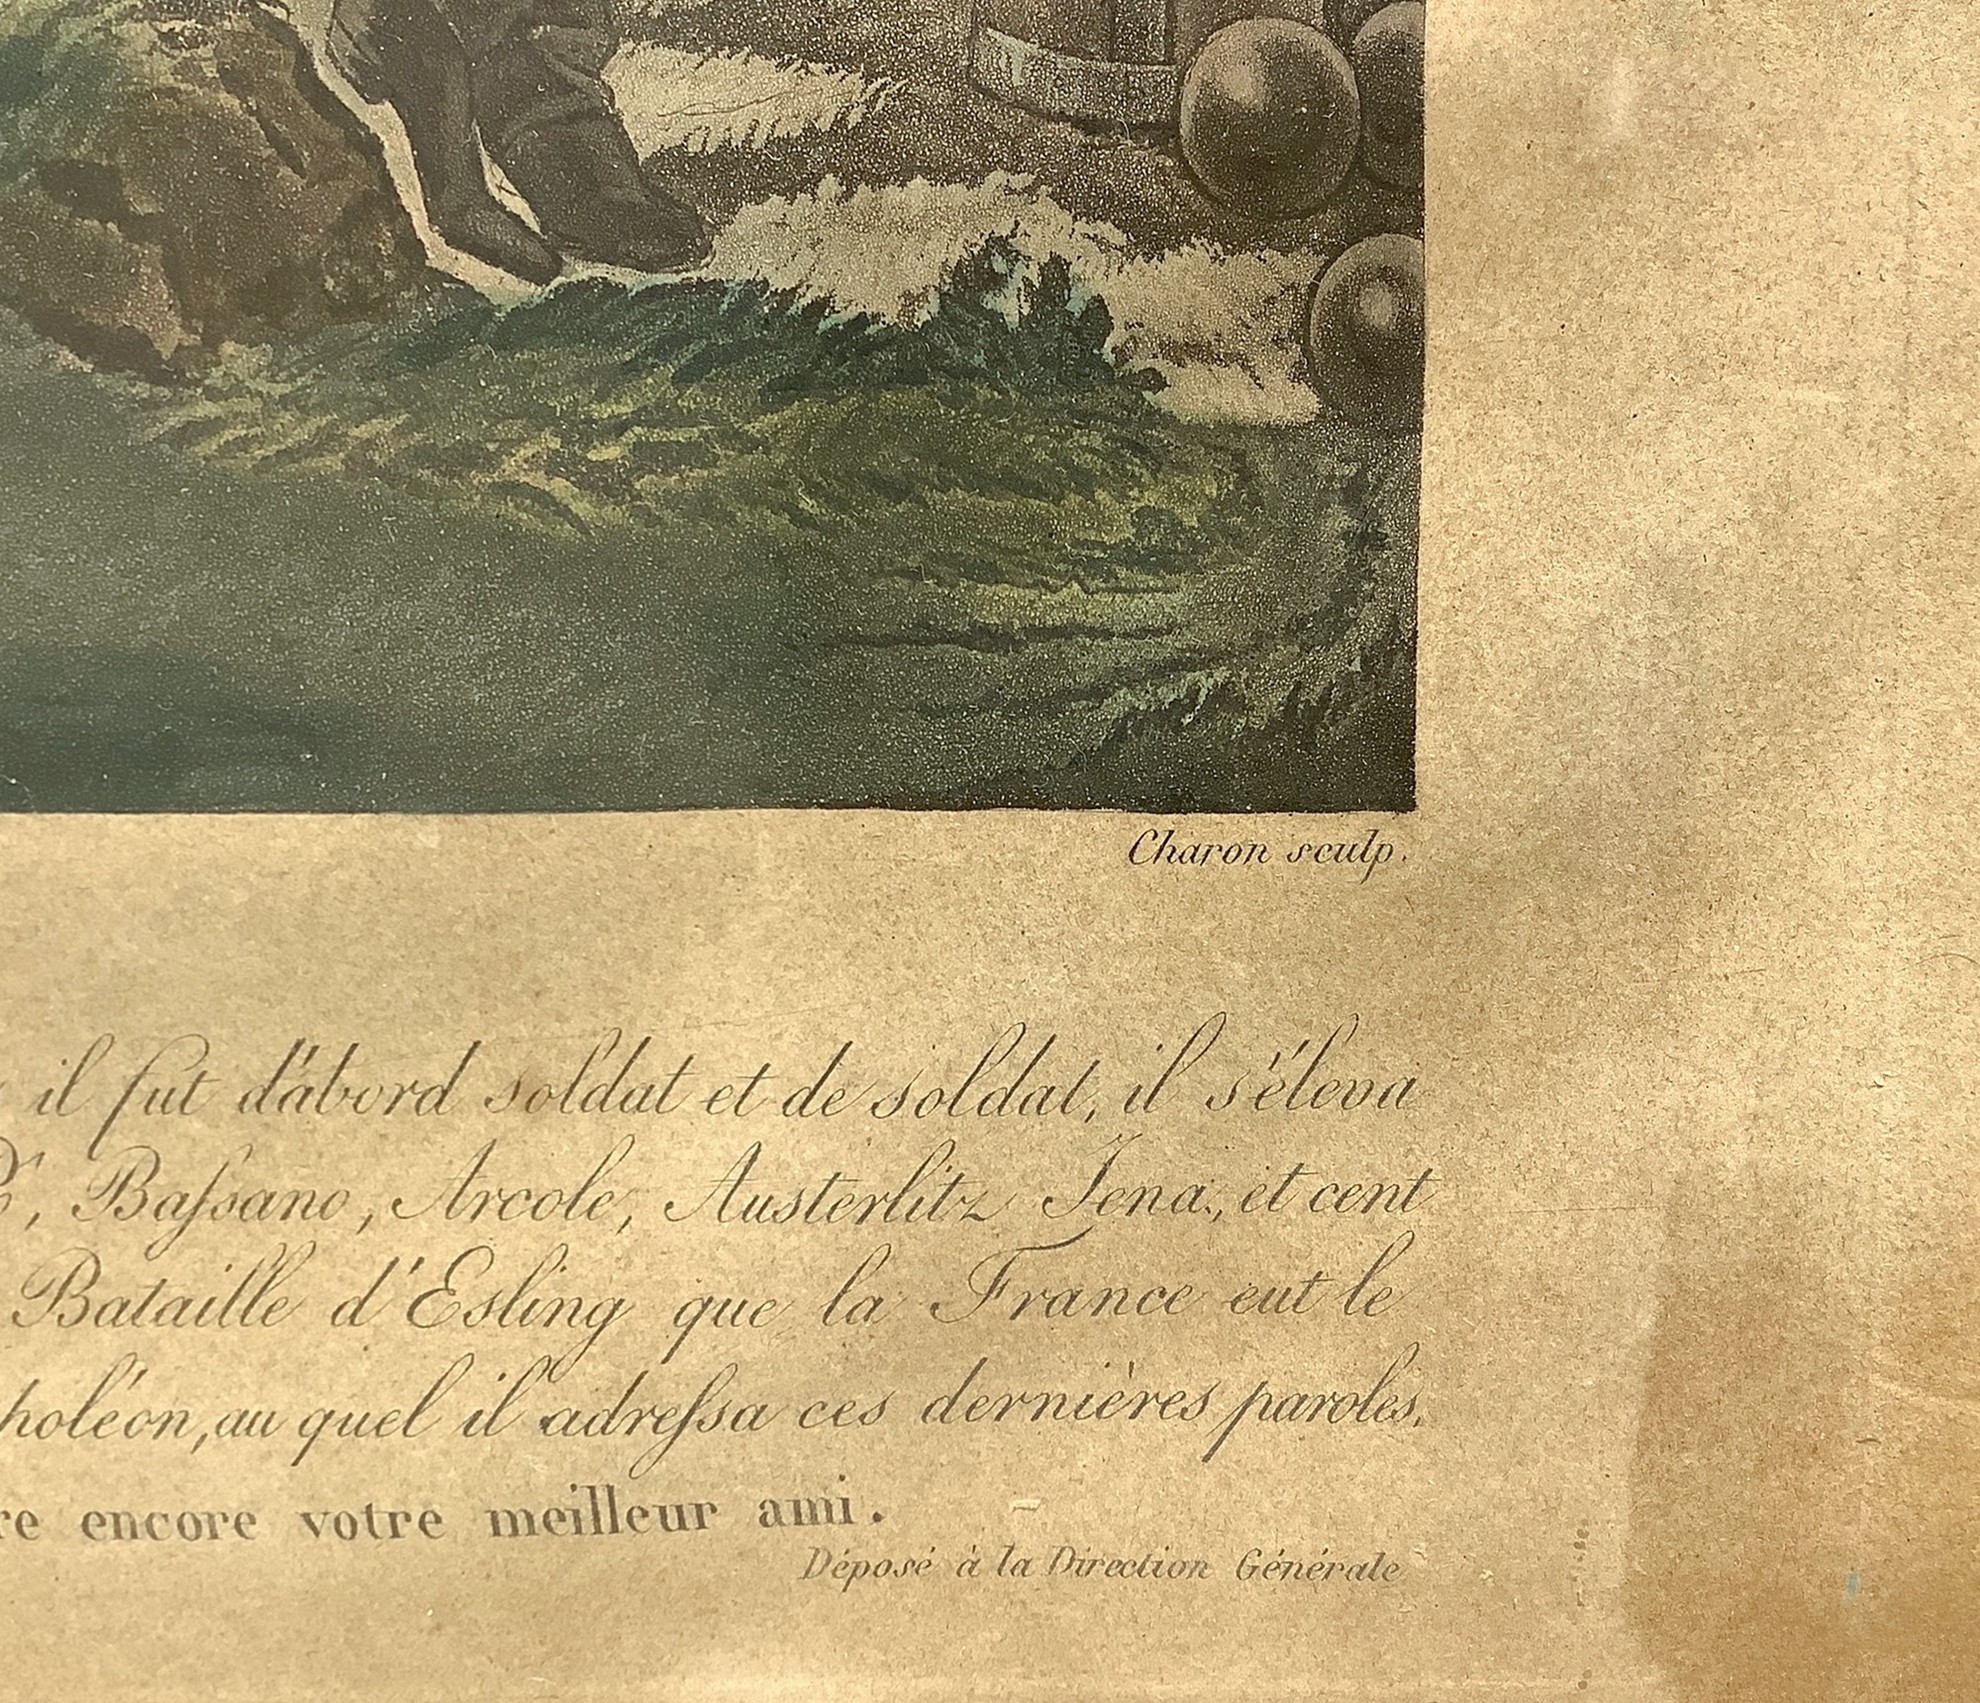 Charon sculp.
il fut d'abord soldat et de soldat, il s'éleva
, Baſsano, Arcole, Austerlitz Jena., et cent
Bataille d'Esling que la France eut le
poléon, au quel il adreſsa ces dernières paroles.
re encore votre meilleur ami.
Déposé à la Direction Générale